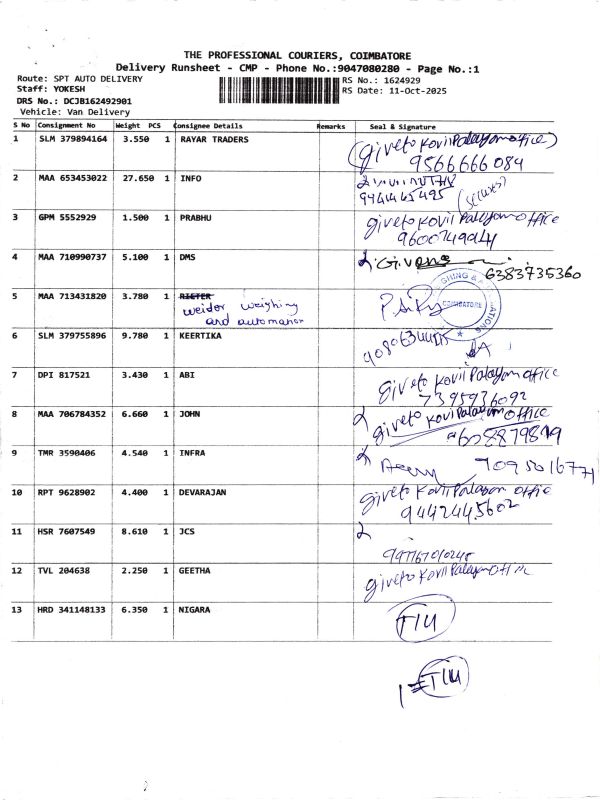 THE PROFESSIONAL COURIERS, COIMBATORE
Delivery Runsheet - CMP - Phone No.:9047080280 - Page No.:1
Route: SPT AUTO DELIVERY RS No.: 1624929
Staff: YOKESH RS Date: 11-Oct-2025
DRS No.: DCJB162492901
Vehicle: Van Delivery
S No Consignment No Weight PCS Consignee Details Remarks Seal & Signature
1 SLM 379894164 3.550 1 RAYAR TRADERS (giveto Kovil Palayam office)
9566666084
2 MAA 653453022 27.650 1 INFO
3 GPM 5552929 1.500 1 PRABHU giveto Kovil Palayam office
9600749944
4 MAA 710990737 5.100 1 DMS
6383735360
5 MAA 713431820 3.780 1 RIETER
weider weighing
and automation
COIMBATORE
6 SLM 379755896 9.780 1 KEERTIKA
7 DPI 817521 3.430 1 ABI giveto Kovil Palayam office
7395936092
8 MAA 706784352 6.660 1 JOHN giveto Kovil Palayam office
9 TMR 3590406 4.540 1 INFRA
10 RPT 9628902 4.400 1 DEVARAJAN giveto Kovil Palayam office
9442445602
11 HSR 7607549 8.610 1 JCS
12 TVL 204638 2.250 1 GEETHA giveto Kovil Palayam office
13 HRD 341148133 6.350 1 NIGARA